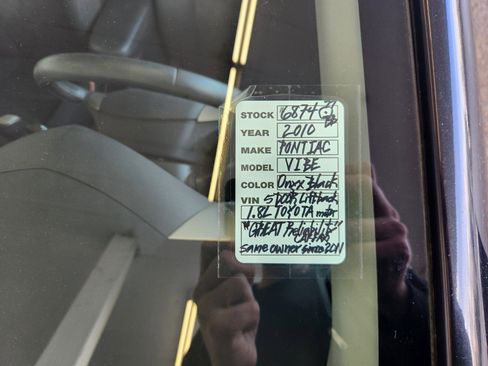 STOCK 6874
YEAR 2010
MAKE PONTIAC
MODEL VIBE
COLOR Onyx Black
VIN 5 DOOR Liftback
1.8L TOYOTA motor
"GREAT Reliability"
CARFAX
same owner since 2011